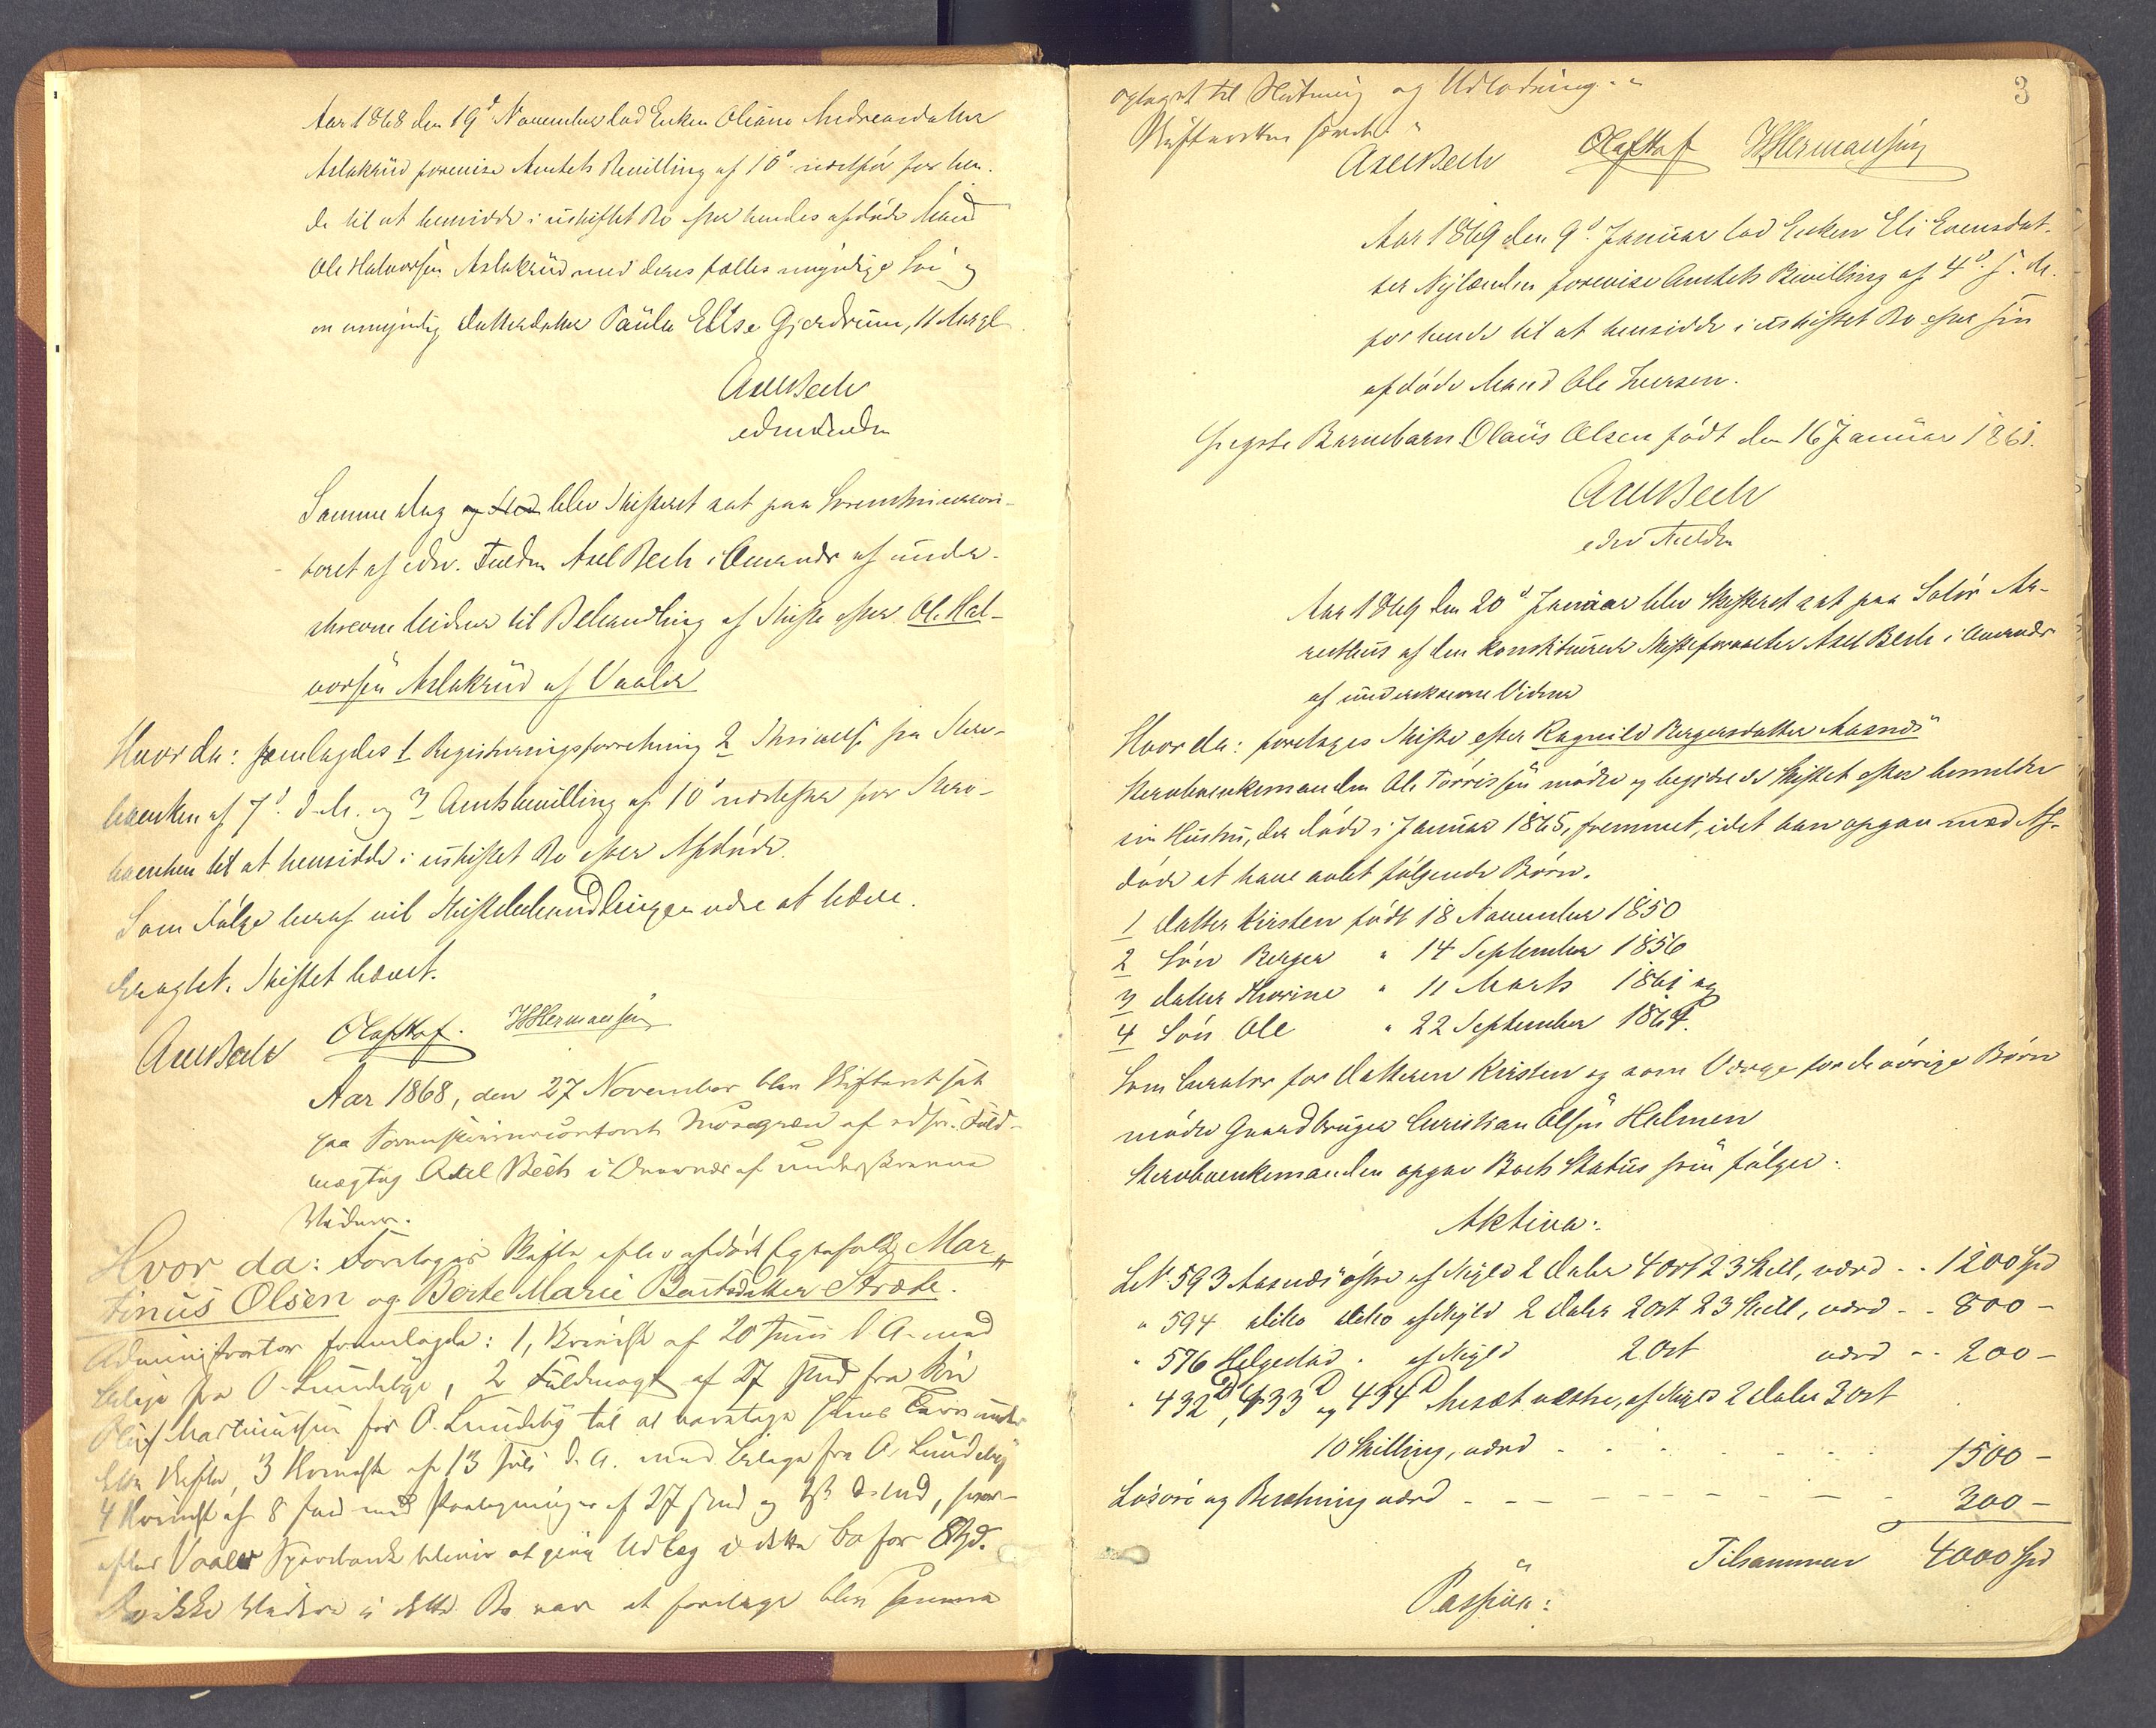 Aar 1868 den 19d November lod Enken Oliane Andreasdatter
Aslakrud forevise Amtets Bevilling af 10d næstfør for hen-
de til at hensidde i uskiftet Bo efter hendes afdøde Mand
Ole Halvorsen Aslakrud med deres fælles myndige Søn og
en umyndig Datterdatter Paula Elise Gjerdrum, 11 Aar gl.
Axel Bech
edsv. Fuldm
Samme Dag og Sted blev Skifteret sat paa Sorenskrivercon-
toret af edsv. Fuldm Axel Bech i Overvær af under-
skrevne Vidner til Behandling af Skifte efter Ole Hal-
vorsen Aslakrud af Vaaler
Hvor da: fremlagdes 1 Registreringsforretning 2 Skrivelse fra Stærv-
boenken af 7d d. M. og 3 Amtsbevilling af 10d næstefter for Stærv-
boenken til at hensidde i uskiftet Bo efter Afdøde.
Som Følge heraf vil Skiftebehandlingen være at hæve.
Eragtet. Skiftet hævet.
Axel Bech Olaf Haf. H Hermansen
Aar 1868, den 27 November blev Skifteret sat
paa Sorenskrivercontoret Mosogræn af edsv. Fuld-
mægtig Axel Bech i Overvær af underskrevne
Vidner.
Hvor da: Foretoges Skifte efter afdøde Egtefolk Mar-
tinus Olsen og Berte Marie Bartsdatter Stræte.
Administrator fremlagde: 1, Skrivelse af 20 Juni d. A. med
Bilage fra O. Lundeby, 2 Fuldmagt af 27 fra Søn
Oluf Martinussen for O. Lundeby til at varetage hans Tarv under
dette Skifte, 3 Skrivelse af 13 Juli d. A. med Bilage fra O. Lundeby
4 Skrivelse af 8 med Paategninger af 27 og hvor-
efter Vaaler Sparebank bliver at give Udlæg i dette Bo for 8 Spd.
Da ikke Videre i dette Bo var at foretage blev samme
3
optaget til Slutning og Udlodning.
Skifteretten hævet.
Axel Bech Olaf Haf H Hermansen
Aar 1869 den 9d Januar lod Enken Eli Evensdat-
ter Nylænden forevise Amtets Bevilling af 4d f. M.
for hende til at hensidde i uskiftet Bo efter sin
afdøde Mand Ole Larsen.
Eneste Barnebarn Olaus Olsen født den 16 Januar 1861.
Axel Bech
edsv Fuldm
Aar 1869 den 20d Januar blev Skifteret sat paa Solør Ar-
resthus af den konstituerede Skifteforvalter Axel Bech i Overvær
af underskrevne Vidner
Hvor da: foretoges Skifte efter Ragnild Bergersdatter Aasnæs
Stærvboenkemanden Ole Torrissen mødte og begjærede Skiftet efter bemeldte
sin Hustru, der døde i Januar 1865, fremmet, idet han opgav med Af-
døde at have avlet følgende Børn.
1 Datter Kirsten født 18 November 1850
2 Søn Berger " 14 September 1856
3 Datter Thorine " 11 Marts 1861 og
4 Søn Ole " 22 September 1864.
Som Curator for Datteren Kirsten og som Værge for de øvrige Børn
mødte Gaardbruger Christian Olsen Holmen
Stærvboenkemanden opgav Boets Status som følger:
Aktiva:
L.N. 593 Aasnæs østre af Skyld 2 Daler 4 ort 23 Skill, værd - - 1200 Spd
" 594 ditto ditto af Skyld 2 Daler 2 Ort 23 Skill, værd - - 800 -
" 576 Helgestad " af Skyld 2 Ort værd - - 200 -
" 432 b, 433 b og 434 b vestre, af Skyld 2 Daler 3 Ort
10 Skilling, værd - - - - - - 1500 -
Løsøre og Besætning værd - - - - - - - - 300 -
Tilsammen 4000 Spd
Passiva: